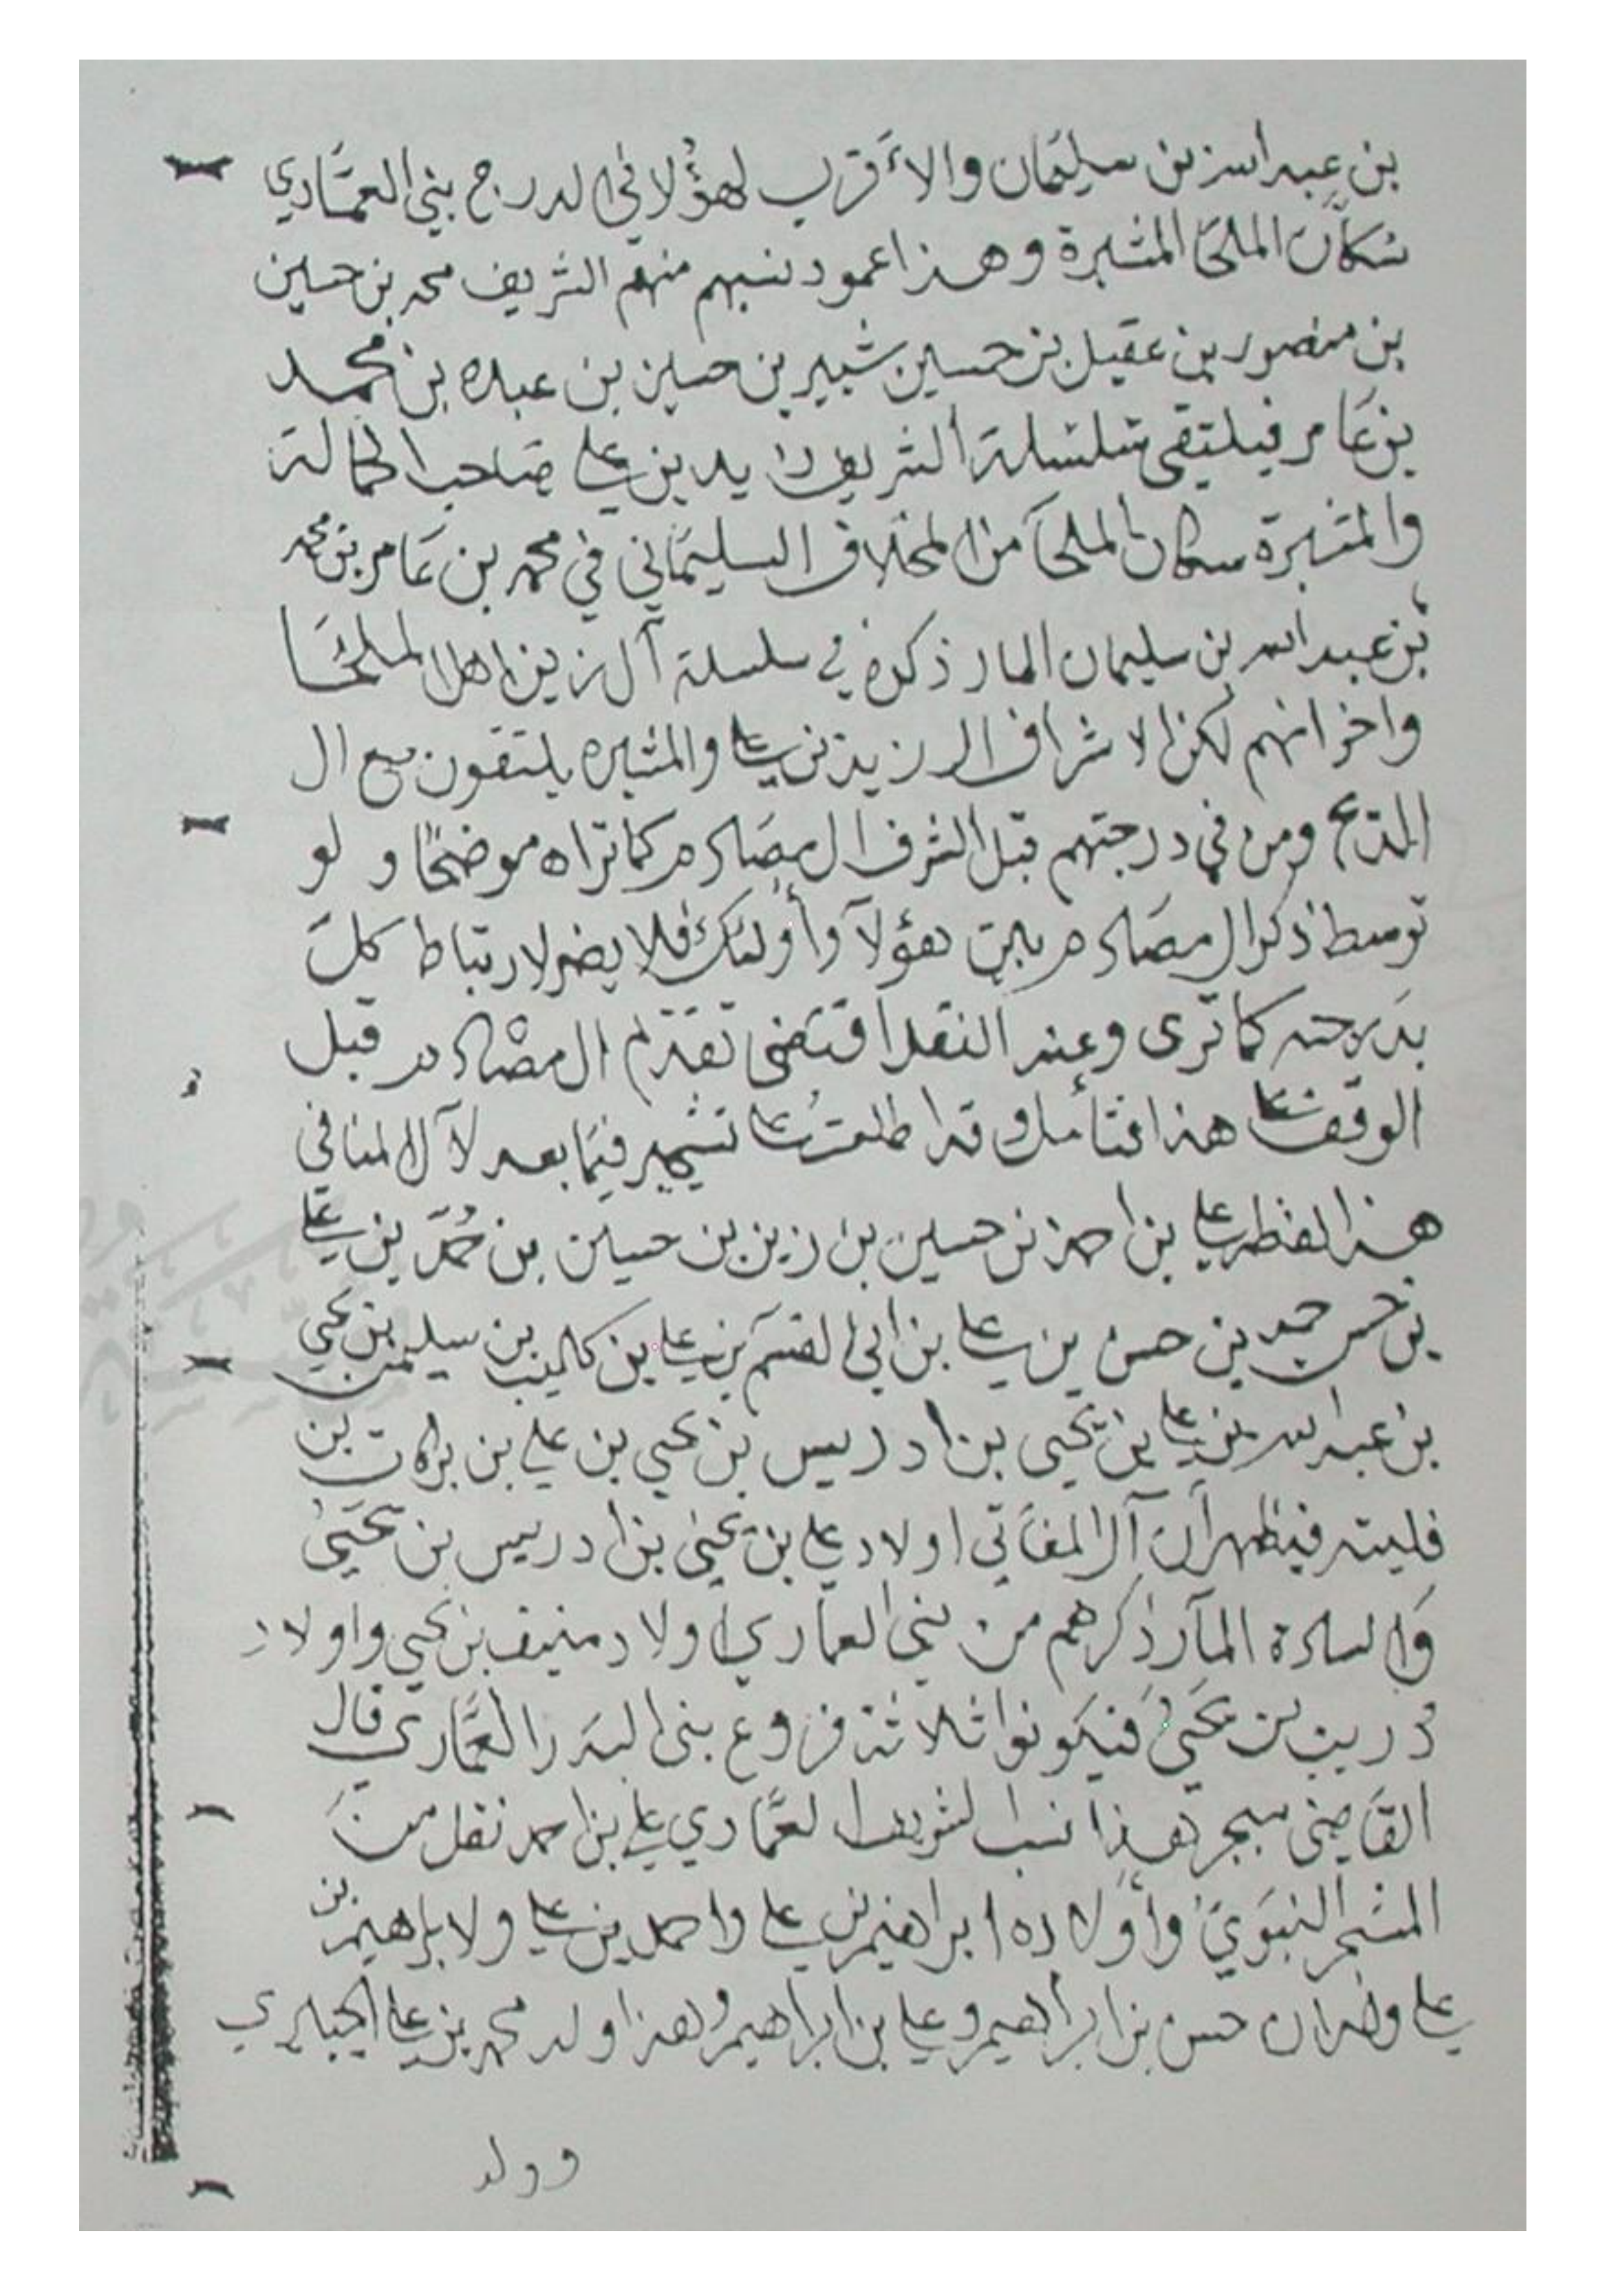 بن عبد الله بن سليمان والأقرب لهؤلا في الدرج بني العماري
سكان الملحا المثبرة وهذا عمود نسبهم منهم الشريف محمد بن حسين
بن منصور بن عقيل بن حسين شبير بن حسين بن عبده بن محمد
بن عامر فيلتقى سلسلة الشريف بن علي صاحب
والمثبرة سكان الملحا من المخلاف السليماني في محمد بن عامر بن محمد
بن عبد الله بن سليمان المار ذكره في سلسلة آل زين اهل الملحا
واخوانهم لكن الاشراف ال زيد بن علي والمثبره يلتقون مع ال
ومن في درجتهم قبل الشرف ال مصادم كما تراه موضحا و لو
توسط ذكر ال مصادم بين هؤلآ وأولئك فلا يضر لارتباط كل
بدرجته كما ترى وعند النقل اقتضى تقدم ال مصادم قبل
الوقف على هذا فتأمل وقد اطلعت على تشجير فيما بعد لآل
هذا لفظه علي بن احمد بن حسين بن زين بن حسين بن حمد بن علي
بن حسن حمد بن حسن بن علي بن ابي القسم بن علي بن كليب بن سليمن بن يحيي
بن عبد الله بن علي بن يحيى بن ادريس بن يحيي بن علي بن بركات بن
فليته فيظهر أن آل اولاد علي بن يحيى بن ادريس بن يحيى
والسادة المآر ذكرهم من بني العماري اولاد منيف بن يحيي واولاد
دريب بن يحيى فيكونوا ثلاثة فروع بنى البدر العماري قال
القاضى هذا نسب الشريف العماري علي بن احمد نقل من
المشجر النبوي وأولاده ابراهيم بن علي واحمد بن علي ولابراهيم بن
علي ولدان حسن بن ابراهيم وعلي بن ابراهيم وهذا ولد محمد بن علي
وولد